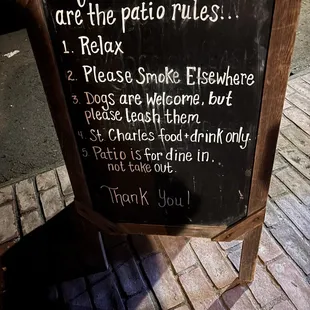 are the patio rules...
1. Relax
2. Please Smoke Elsewhere
3. Dogs are welcome, but
please leash them
4 St Charles food + drink only.
5 Patio is for dine in..
not take out.
Thank You!